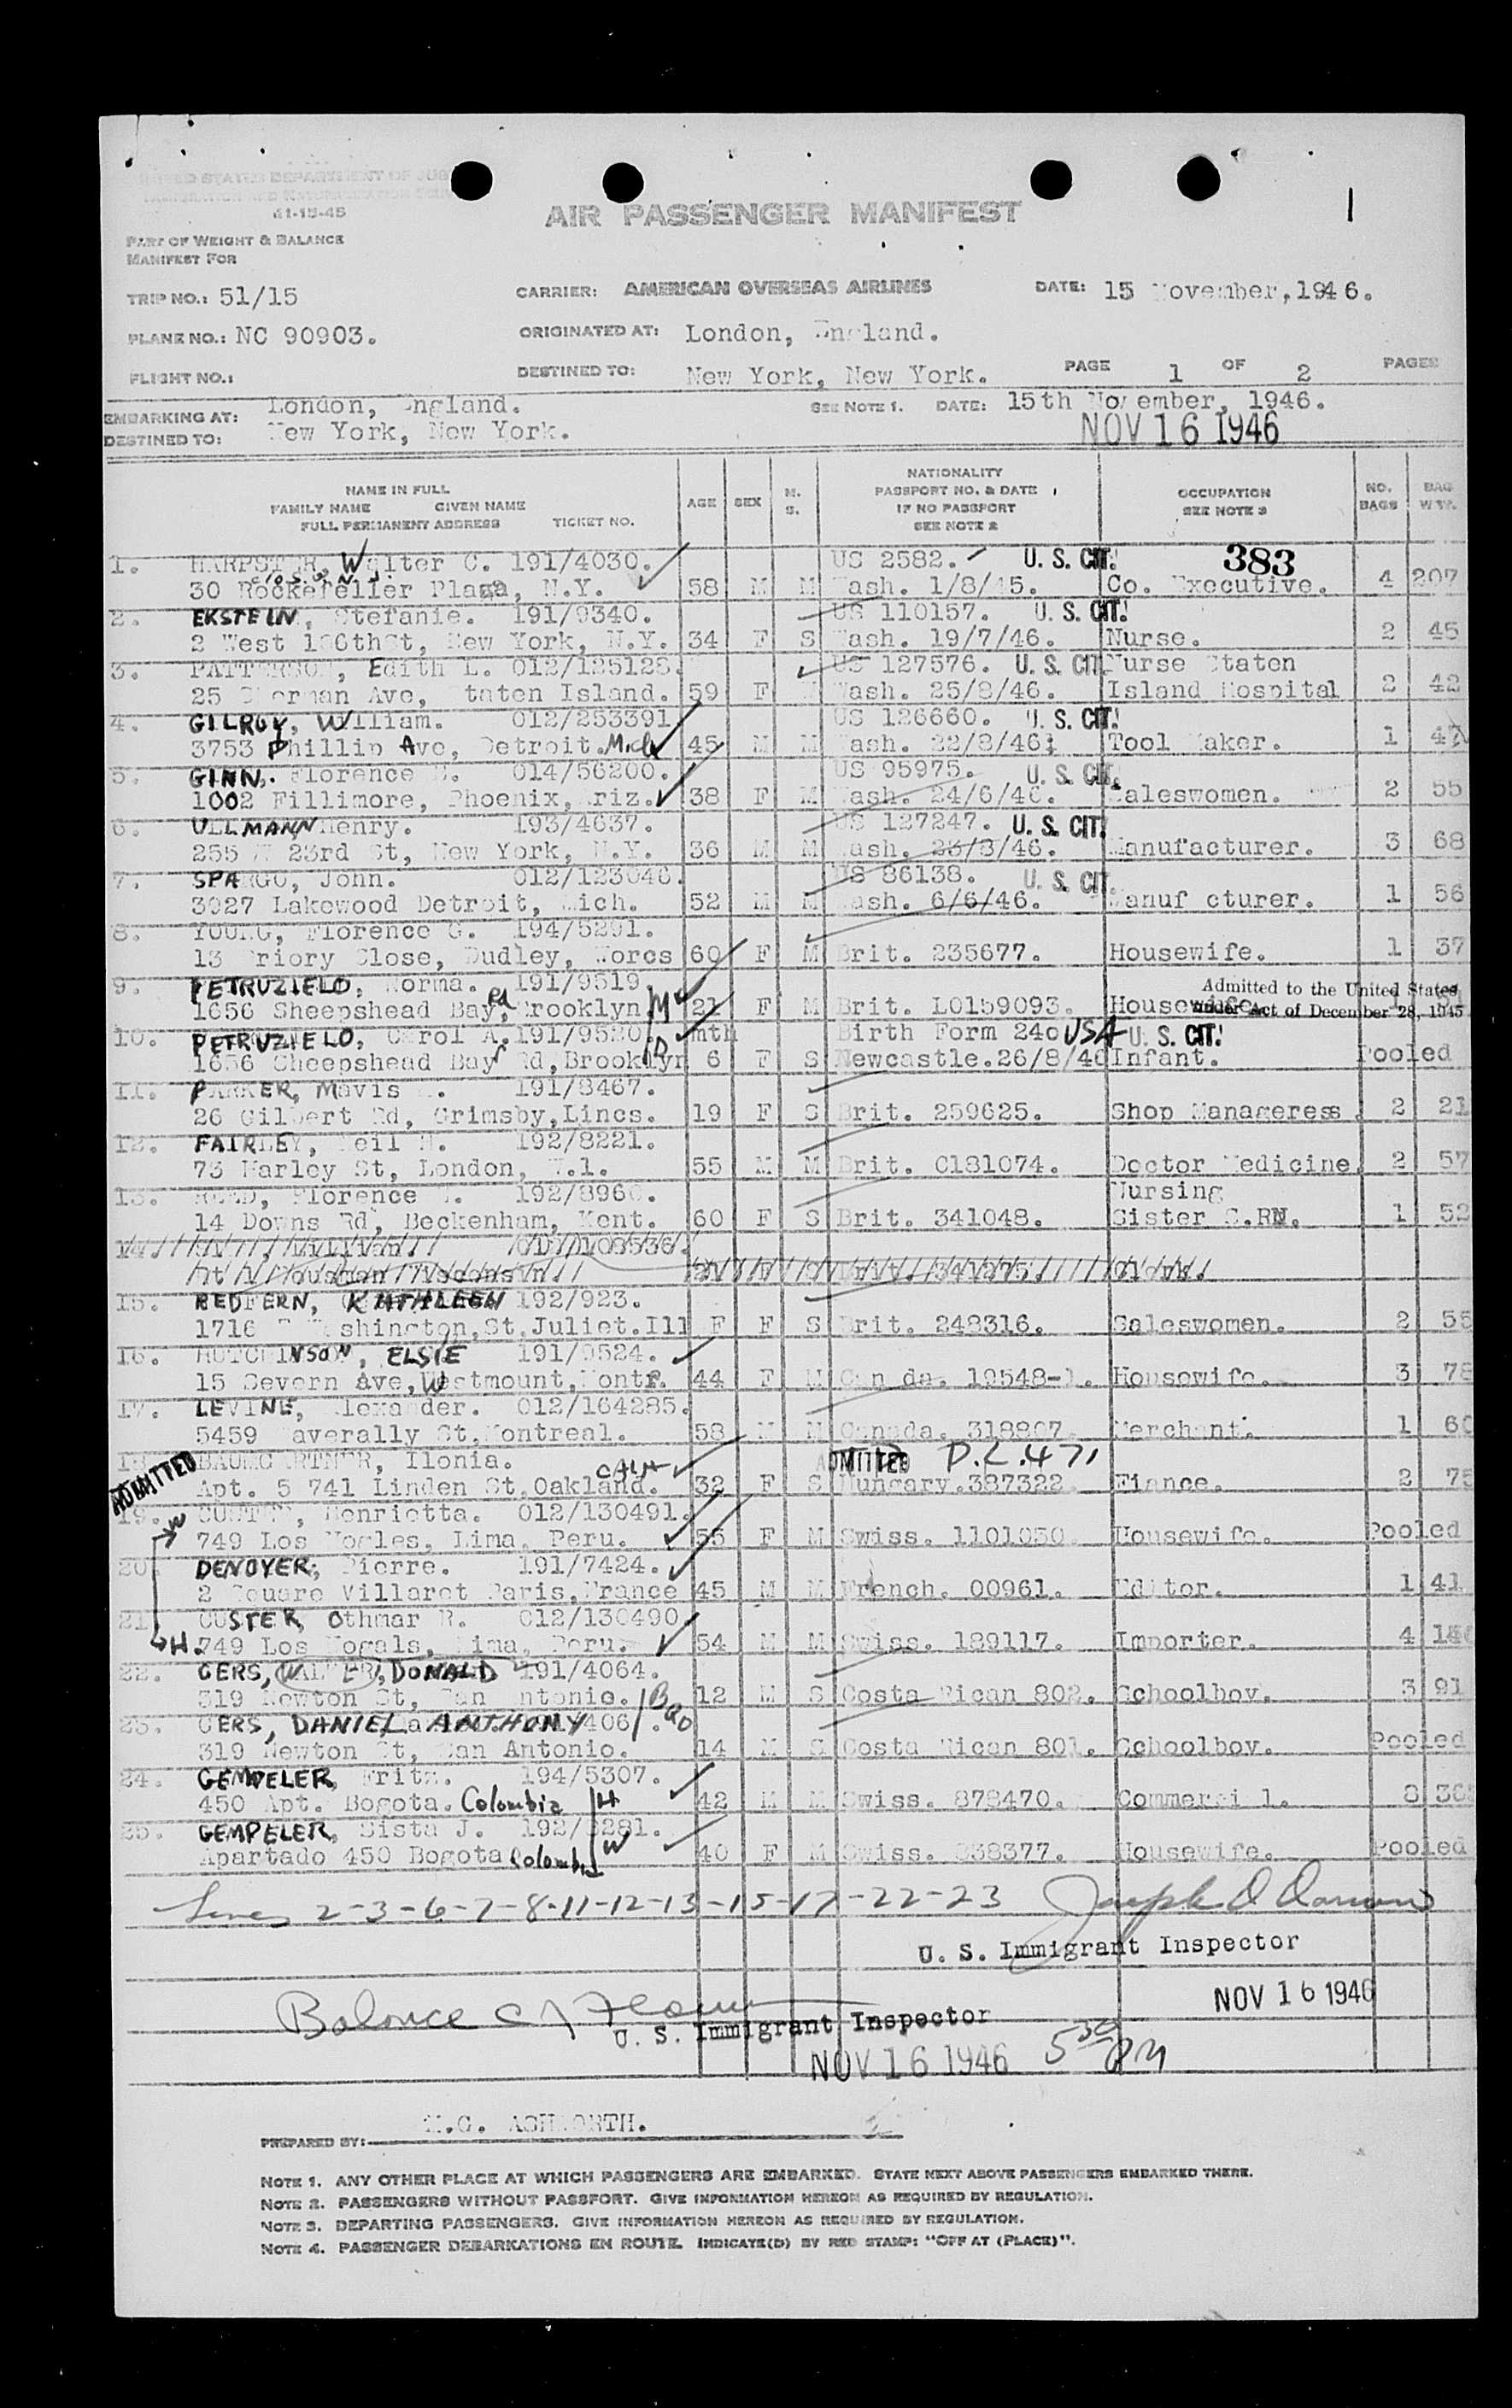 UNITED STATES DEPARTMENT OF
11-15-45
AIR PASSENGER MANIFEST
1
PART OF WEIGHT & BALANCE
MANIFEST FOR
TRIP NO.: 51/15 CARRIER: AMERICAN OVERSEAS AIRLINES DATE: 15 November, 1946.
PLANE NO.: NC 90903. ORIGINATED AT: London, England.
FLIGHT NO.: DESTINED TO: New York, New York. PAGE 1 OF 2 PAGES
EMBARKING AT: London, England. SEE NOTE 1. DATE: 15th November, 1946.
DESTINED TO: New York, New York. NOV 16 1946
NAME IN FULL
FAMILY NAME GIVEN NAME
FULL PERMANENT ADDRESS TICKET NO.
AGE SEX M. S.
NATIONALITY
PASSPORT NO. & DATE
IF NO PASSPORT
SEE NOTE 2
OCCUPATION
SEE NOTE 3
NO. BAGS BAG WT.
1. HARPSTER, Walter C. 191/4030. US 2582. U. S. CIT. 383
30 Rockefeller Plaza, N.Y. 58 M M Wash. 1/8/45. Co. Executive. 4 207
2. EKSTEIN, Stefanie. 191/9340. US 110157. U. S. CIT.
2 West 106thSt, New York, N.Y. 34 F S Wash. 19/7/46. Nurse. 2 45
3. PATTERSON, Edith L. 012/125128. US 127576. U. S. CIT. Nurse Staten
25 Sherman Ave, Staten Island. 59 F Wash. 25/8/46. Island Hospital 2 42
4. GILROY, William. 012/253391 US 126660. U. S. CIT.
3753 Phillip Ave, Detroit. Mich 45 M M Wash. 22/8/46. Tool Maker. 1 47
5. GINN, Florence 014/56200. US 95975. U. S. CIT.
1002 Fillimore, Phoenix, Ariz. 38 F M Wash. 24/6/46. Saleswomen. 2 55
6. ULLMANN Henry. 193/4637. US 127247. U. S. CIT.
255 W 23rd St, New York, N.Y. 36 M M Wash. 26/8/46. Manufacturer. 3 68
7. SPARGO, John. 012/123046. US 86138. U. S. CIT.
3927 Lakewood Detroit, Mich. 52 M M Wash. 6/6/46. Manufacturer. 1 56
8. YOUNG, Florence G. 194/5291.
13 Priory Close, Dudley, Worcs 60 F M Brit. 235677. Housewife. 1 37
9. PETRUZIELO, Norma. 191/9519. Admitted to the United States
1656 Sheepshead Bay, Rd Brooklyn M 21 F M Brit. L0159093. Housewife. under Act of December 28, 1945
10. PETRUZIELO, Carol A. 191/9520 D mth Birth Form 240 USA U. S. CIT.
1656 Sheepshead Bay Rd, Brooklyn 6 F S Newcastle. 26/8/46 Infant. Pooled
11. PARKER, Mavis 191/8467.
26 Gilbert Rd, Grimsby, Lincs. 19 F S Brit. 259625. Shop Manageress. 2 21
12. FAIRLEY, Neil H. 192/8221.
73 Harley St, London, W.1. 55 M M Brit. C181074. Doctor Medicine. 2 57
13. REED, Florence 192/8966. Nursing
14 Downs Rd, Beckenham, Kent. 60 F S Brit. 341048. Sister S.RN. 1 52
14.
15. REDFERN, KATHLEEN 192/923.
1716 Washington, St, Juliet. Ill F F S Brit. 248316. Saleswomen. 2 55
16. HUTCHINSON, ELSIE 191/9524.
15 Severn Ave, Westmount, Montr. 44 F M Canada. 19548-1. Housewife. 3 78
17. LEVINE, Alexander. 012/164285.
5459 Waverally St, Montreal. 58 M M Canada. 318807. Merchant. 1 60
ADMITTED 18. BAUMGARTNER, Ilonia. ADMITTED P.L. 471
Apt. 5 741 Linden St, Oakland. CALIF 32 F S Hungary. 387322. Fiance. 2 75
19. CUSTER, Henrietta. 012/130491.
W 749 Los Nogles, Lima, Peru. 55 F M Swiss. 1101050. Housewife. Pooled
20. DENOYER, Pierre. 191/7424.
2 Square Villaret Paris, France 45 M M French. 00961. Editor. 1 41
21. CUSTER, Othmar R. 012/130490
H. 749 Los Nogals, Lima, Peru. 54 M M Swiss. 189117. Importer. 4 140
22. GERS, WALTER, DONALD 191/4064.
319 Newton St, San Antonio. Bro 12 M S Costa Rican 802. Schoolboy. 3 91
23. GERS, DANIEL ANTHONY 406
319 Newton St, San Antonio. 14 M S Costa Rican 801. Schoolboy. Pooled
24. GEMPELER, Fritz. 194/5307.
450 Apt. Bogota. Colombia H 42 M M Swiss. 878470. Commercial. 8
25. GEMPELER, Sista J. 192/8281.
Apartado 450 Bogota Colombia W 40 F M Swiss. 838377. Housewife. Pooled
Lines 2-3-6-7-8-11-12-13-15-17-22-23
U. S. Immigrant Inspector
NOV 16 1946
Balance
U. S. Immigrant Inspector
NOV 16 1946 5 30 PM
PREPARED BY: ASHWORTH.
NOTE 1. ANY OTHER PLACE AT WHICH PASSENGERS ARE EMBARKED. STATE NEXT ABOVE PASSENGERS EMBARKED THERE.
NOTE 2. PASSENGERS WITHOUT PASSPORT. GIVE INFORMATION HEREON AS REQUIRED BY REGULATION.
NOTE 3. DEPARTING PASSENGERS. GIVE INFORMATION HEREON AS REQUIRED BY REGULATION.
NOTE 4. PASSENGER DEBARKATIONS EN ROUTE. INDICATE(D) BY RED STAMP: "OFF AT (PLACE)".